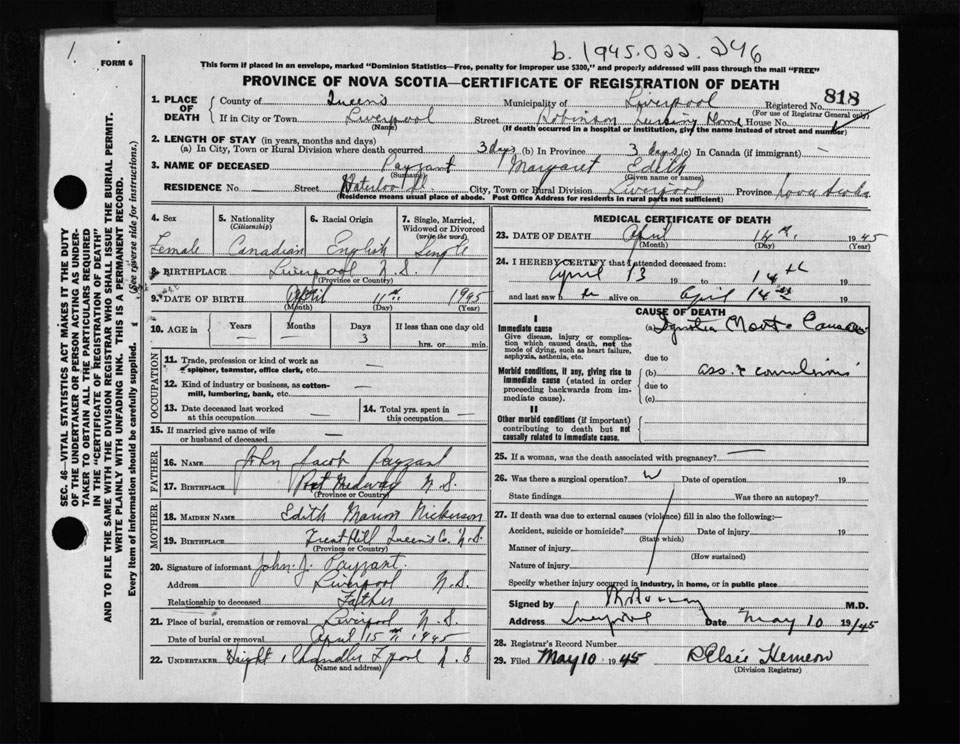 1
b. 1945-022-246
FORM 6
This form if placed in an envelope, marked "Dominion Statistics—Free, penalty for improper use $300," and properly addressed will pass through the mail "FREE"
PROVINCE OF NOVA SCOTIA—CERTIFICATE OF REGISTRATION OF DEATH
1. PLACE OF DEATH
County of Queens Municipality of Liverpool Registered No. 818
(For use of Registrar General only)
If in City or Town Liverpool Street Robinson Nursing Home House No.
(Name) (If death occurred in a hospital or institution, give the name instead of street and number)
2. LENGTH OF STAY (in years, months and days)
(a) In City, Town or Rural Division where death occurred 3 days (b) In Province 3 days (c) In Canada (if immigrant) —
3. NAME OF DECEASED Payzant Margaret Edith
(Surname) (Given name or names)
RESIDENCE No — Street Waterloo St. City, Town or Rural Division Liverpool Province Nova Scotia
(Residence means usual place of abode. Post Office Address for residents in rural parts not sufficient)
4. Sex
Female
5. Nationality
(Citizenship)
Canadian
6. Racial Origin
English
7. Single, Married, Widowed or Divorced
(write the word)
Single
8. BIRTHPLACE Liverpool N.S.
(Province or Country)
9. DATE OF BIRTH April 11th 1945
(Month) (Day) (Year)
10. AGE in
Years
—
Months
—
Days
3
If less than one day old
hrs. or min.
OCCUPATION
11. Trade, profession or kind of work as spinner, teamster, office clerk, etc. —
12. Kind of industry or business, as cotton-mill, lumbering, bank, etc. —
13. Date deceased last worked at this occupation —
14. Total yrs. spent in this occupation —
15. If married give name of wife or husband of deceased —
FATHER
16. NAME John Jacob Payzant
17. BIRTHPLACE Port Medway N.S.
(Province or Country)
MOTHER
18. MAIDEN NAME Edith Marion Nickerson
19. BIRTHPLACE Hill Queen's Co. N.S.
(Province or Country)
20. Signature of informant John J. Payzant.
Address Liverpool N.S.
Relationship to deceased Father
21. Place of burial, cremation or removal Liverpool N.S.
Date of burial or removal April 15th 1945
22. UNDERTAKER Chandler L'pool N.S
(Name and address)
MEDICAL CERTIFICATE OF DEATH
23. DATE OF DEATH April 14th. 1945
(Month) (Day)
24. I HEREBY CERTIFY that I attended deceased from:
April 13 19 to 14th 19
and last saw h er alive on April 14th 19
CAUSE OF DEATH
I
Immediate cause
Give disease, injury or complication which caused death, not the mode of dying, such as heart failure, asphyxia, asthenia, etc.
(a)
due to
Morbid conditions, if any, giving rise to immediate cause (stated in order proceeding backwards from immediate cause).
(b) convulsions
due to
(c)
II
Other morbid conditions (if important) contributing to death but not causally related to immediate cause.
25. If a woman, was the death associated with pregnancy? —
26. Was there a surgical operation? Date of operation 19
State findings Was there an autopsy?
27. If death was due to external causes (violence) fill in also the following:—
Accident, suicide or homicide? Date of injury 19
(State which)
Manner of injury
(How sustained)
Nature of injury
Specify whether injury occurred in industry, in home, or in public place
Signed by M.D.
Address Liverpool Date May 10 19/45
28. Registrar's Record Number
29. Filed May 10 1945
(Division Registrar)
SEC. 46—VITAL STATISTICS ACT MAKES IT THE DUTY
OF THE UNDERTAKER OR PERSON ACTING AS UNDER-
TAKER TO OBTAIN ALL THE PARTICULARS REQUIRED
IN THE "CERTIFICATE OF REGISTRATION OF DEATH"
AND TO FILE THE SAME WITH THE DIVISION REGISTRAR WHO SHALL ISSUE THE BURIAL PERMIT.
WRITE PLAINLY WITH UNFADING INK. THIS IS A PERMANENT RECORD.
Every item of information should be carefully supplied. (See reverse side for instructions.)